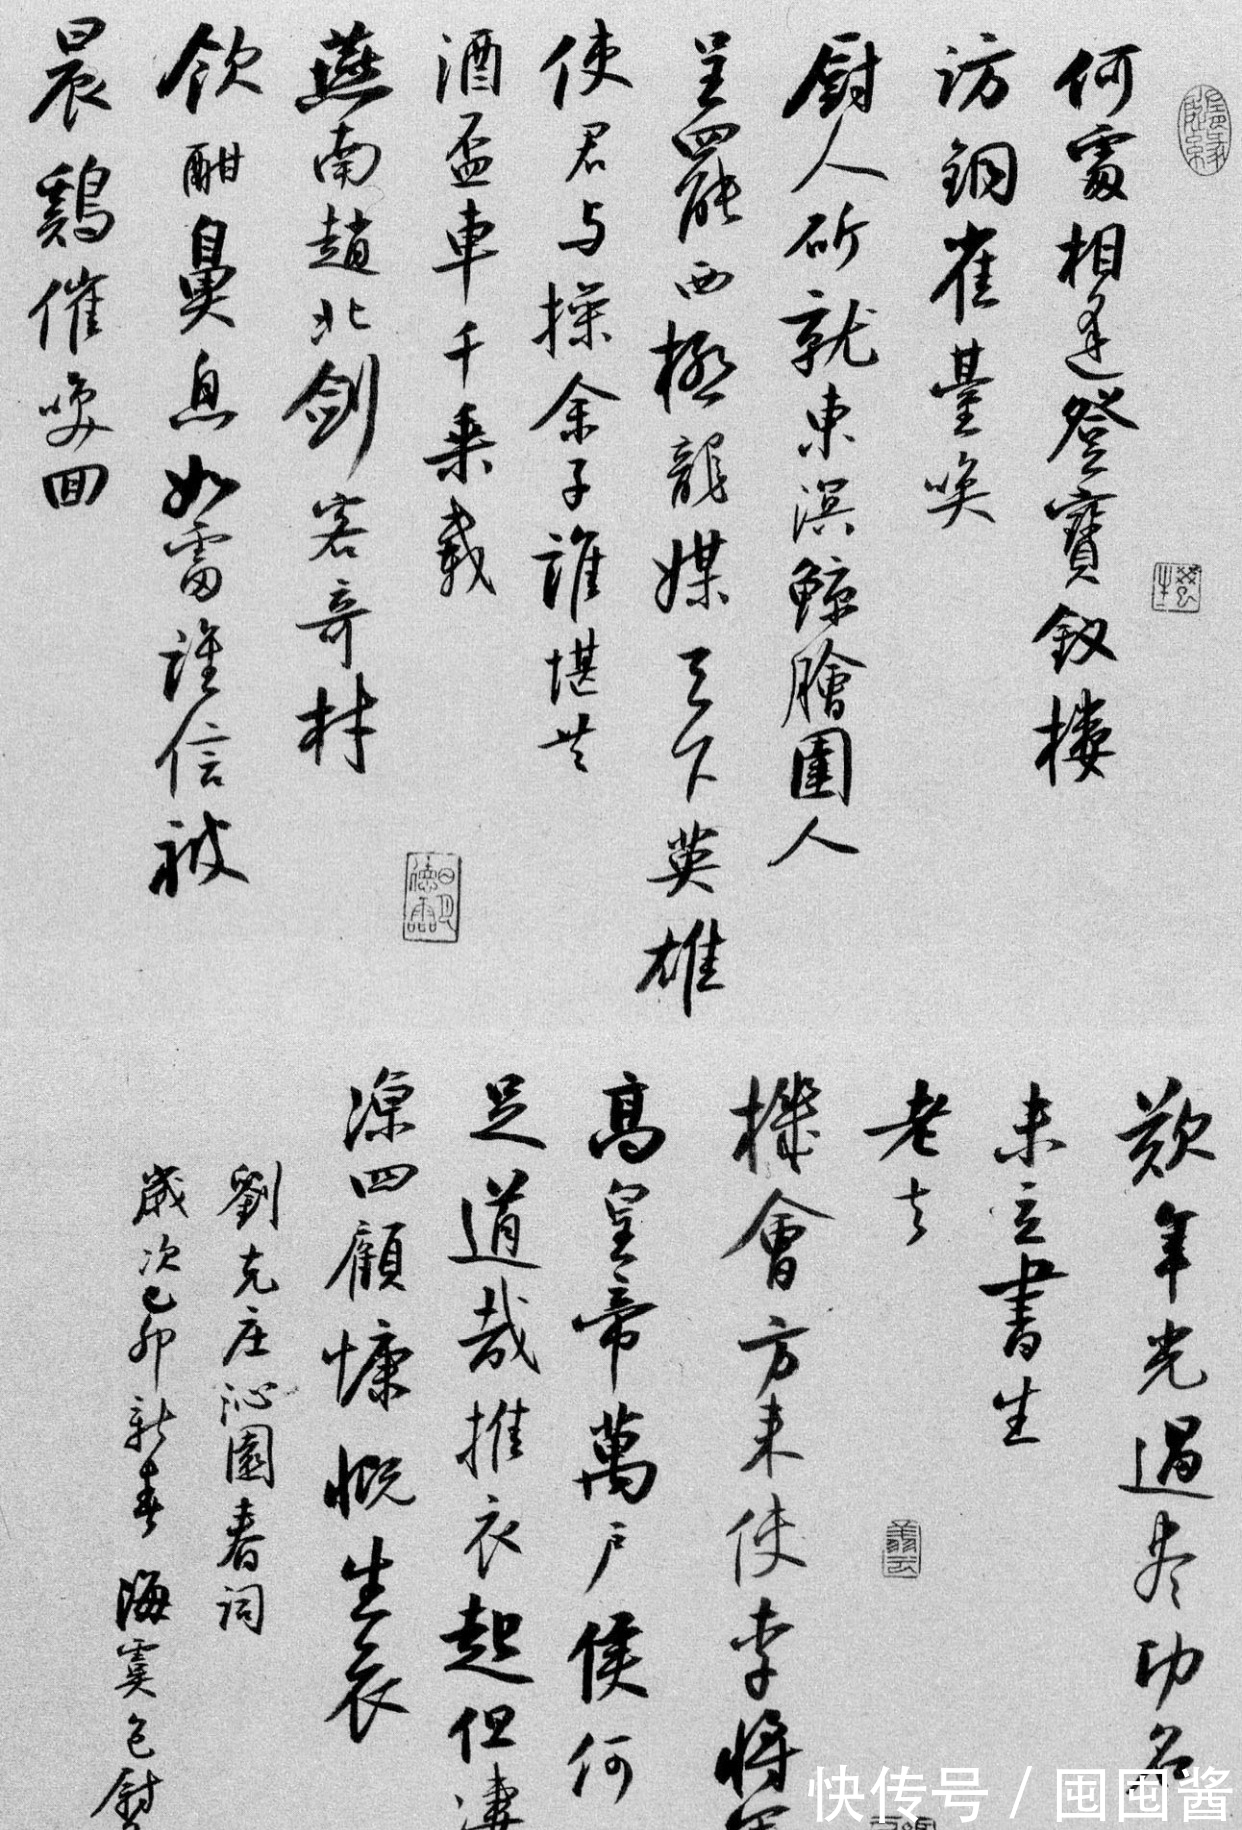 何處相逢登寶釵樓
訪銅雀臺喚
厨人斫就東溟鯨膾圉人
呈罷西極龍媒天下英雄
使君与操余子誰堪共
酒盃車千乘載
燕南趙北劍客奇材
飲酣鼻息如雷誰信被
晨鷄催喚回
歎年光過尽功名
未立書生
老去
機會方来使李將軍
高皇帝萬户侯何
足道哉推衣起但凄
凉四顧慷慨生哀
劉克庄沁園春詞
歲次己卯新春海虞包
快传号 / 囤囤酱